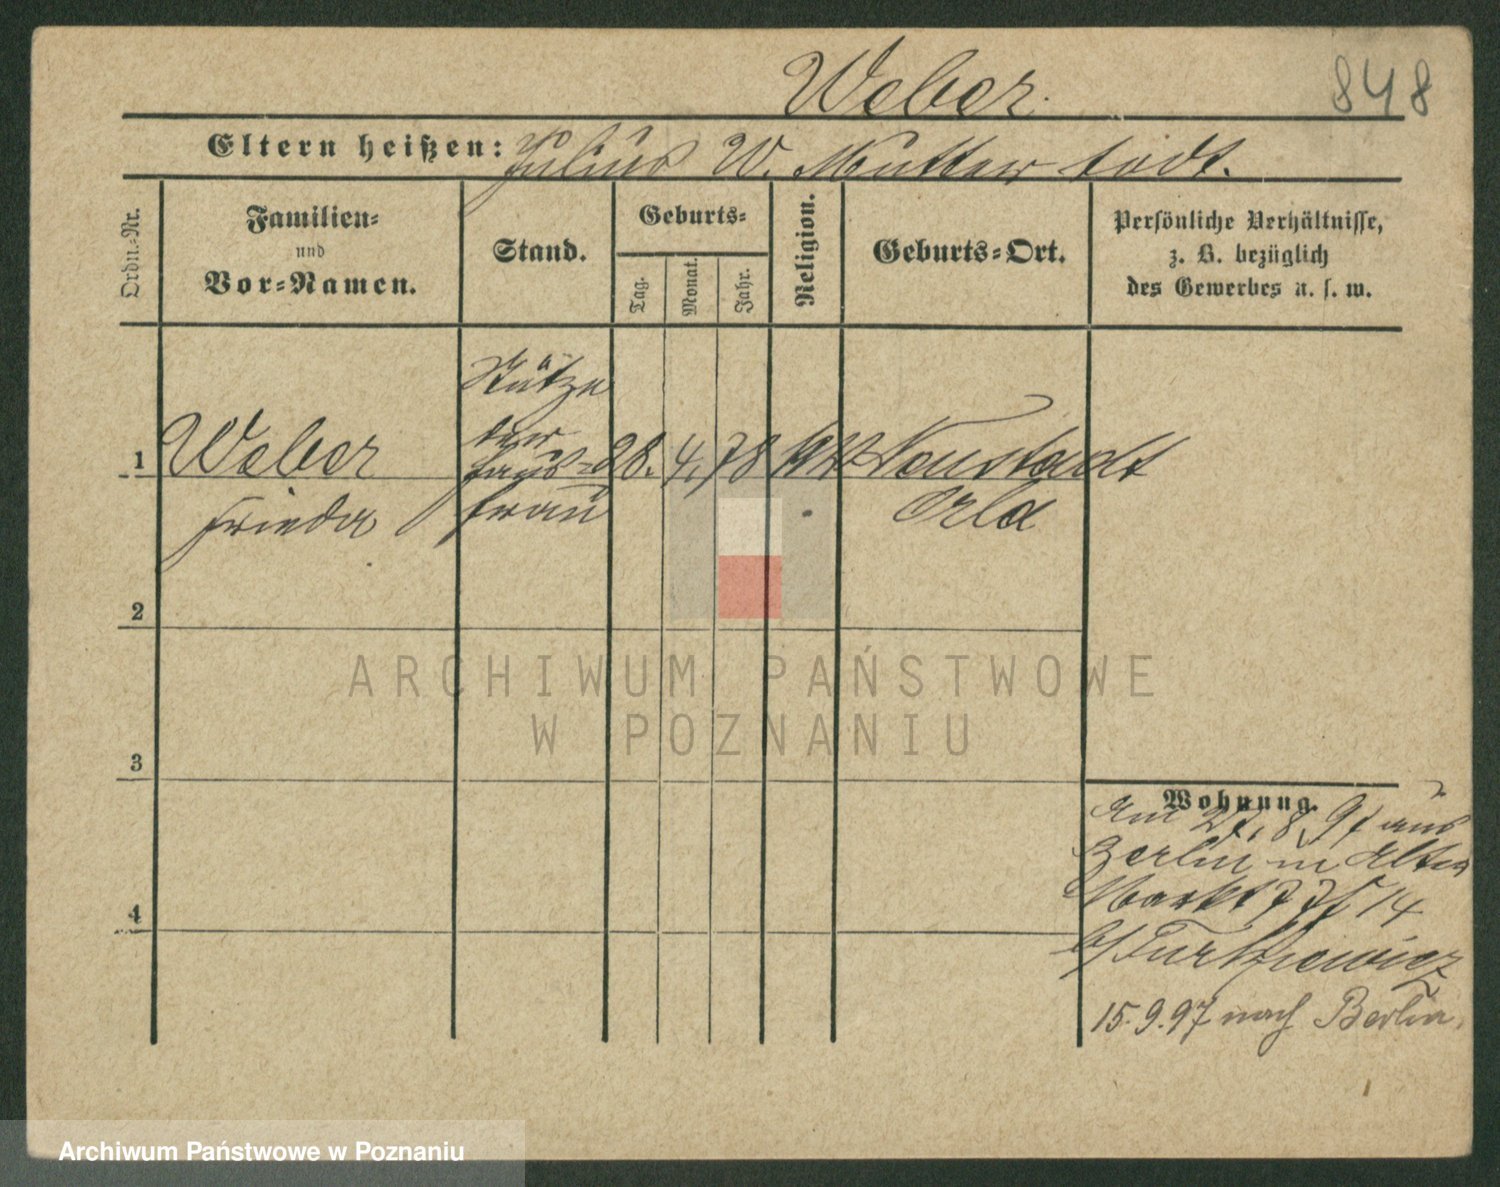 Weber.
848
Eltern heißen: Julius W. Mutter todt.
Ordn.-Nr.
Familien-
und
Vor-Namen.
Stand.
Geburts-
Tag.
Monat.
Jahr.
Religion.
Geburts-Ort.
Persönliche Verhältnisse,
z. B. bezüglich
des Gewerbes u. s. w.
Stütze
der
1 Weber Haus- 28. 4. 78 Neustadt
Frieda frau Orla
2
3
4
Wohnung.
Am 27. 8. 97 aus
Berlin in Alter
Markt 14
b/
15. 9. 97 nach Berlin.
ARCHIWUM PAŃSTWOWE
W POZNANIU
Archiwum Państwowe w Poznaniu